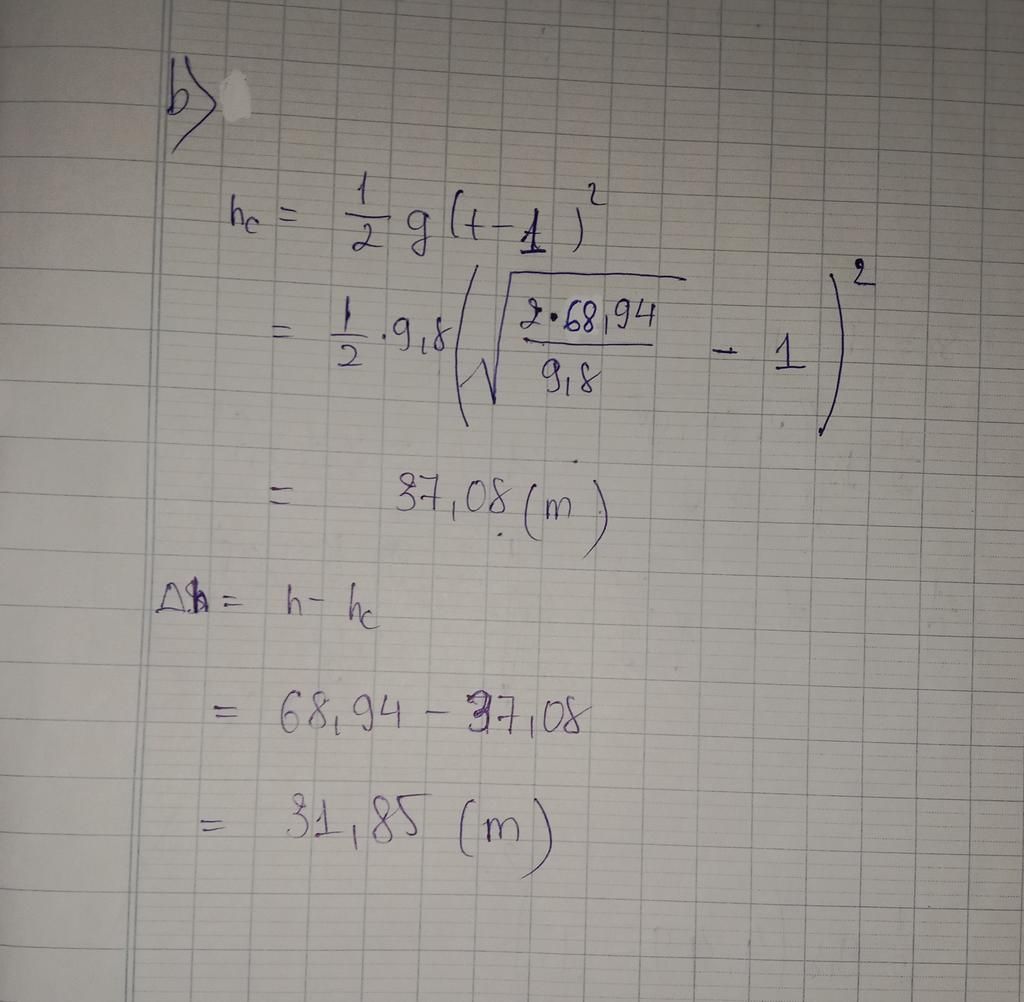 b)
hc = 1/2 g (t - 1)²
= 1/2 . 9,8 ( √(2.68,94 / 9,8) - 1 )²
= 37,08 (m)
Δh = h - hc
= 68,94 - 37,08
= 31,85 (m)